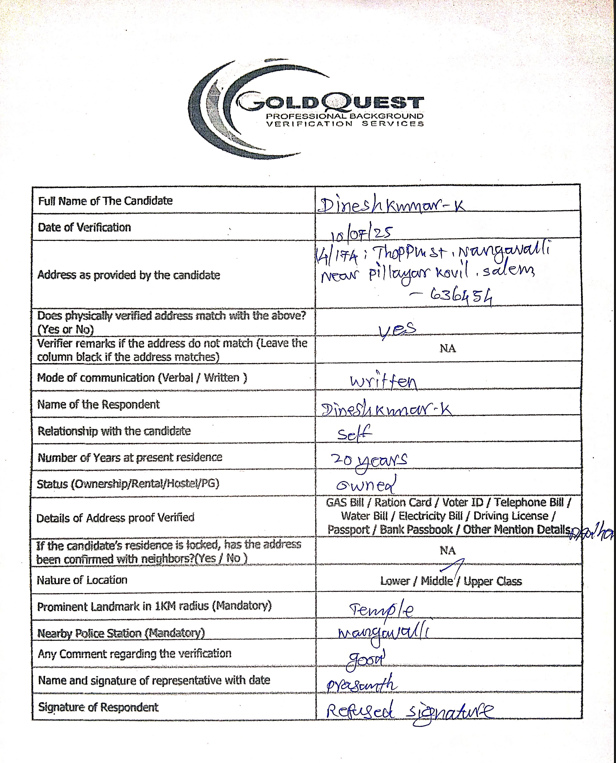 GOLDQUEST
PROFESSIONAL BACKGROUND
VERIFICATION SERVICES
Full Name of The Candidate
Dineshkumar-K
Date of Verification
10/07/25
Address as provided by the candidate
4/17A; Thoppu st, Nangavalli
Near Pillayar kovil, salem
- 636454
Does physically verified address match with the above?
(Yes or No)
yes
Verifier remarks if the address do not match (Leave the
column black if the address matches)
NA
Mode of communication (Verbal / Written )
written
Name of the Respondent
Dineshkumar-K
Relationship with the candidate
Self
Number of Years at present residence
20 years
Status (Ownership/Rental/Hostel/PG)
owned
Details of Address proof Verified
GAS Bill / Ration Card / Voter ID / Telephone Bill /
Water Bill / Electricity Bill / Driving License /
Passport / Bank Passbook / Other Mention Details
If the candidate's residence is locked, has the address
been confirmed with neighbors?(Yes / No )
NA
Nature of Location
Lower / Middle / Upper Class
Prominent Landmark in 1KM radius (Mandatory)
Temple
Nearby Police Station (Mandatory)
Nangavalli
Any Comment regarding the verification
good
Name and signature of representative with date
Prasanth
Signature of Respondent
Refused signature